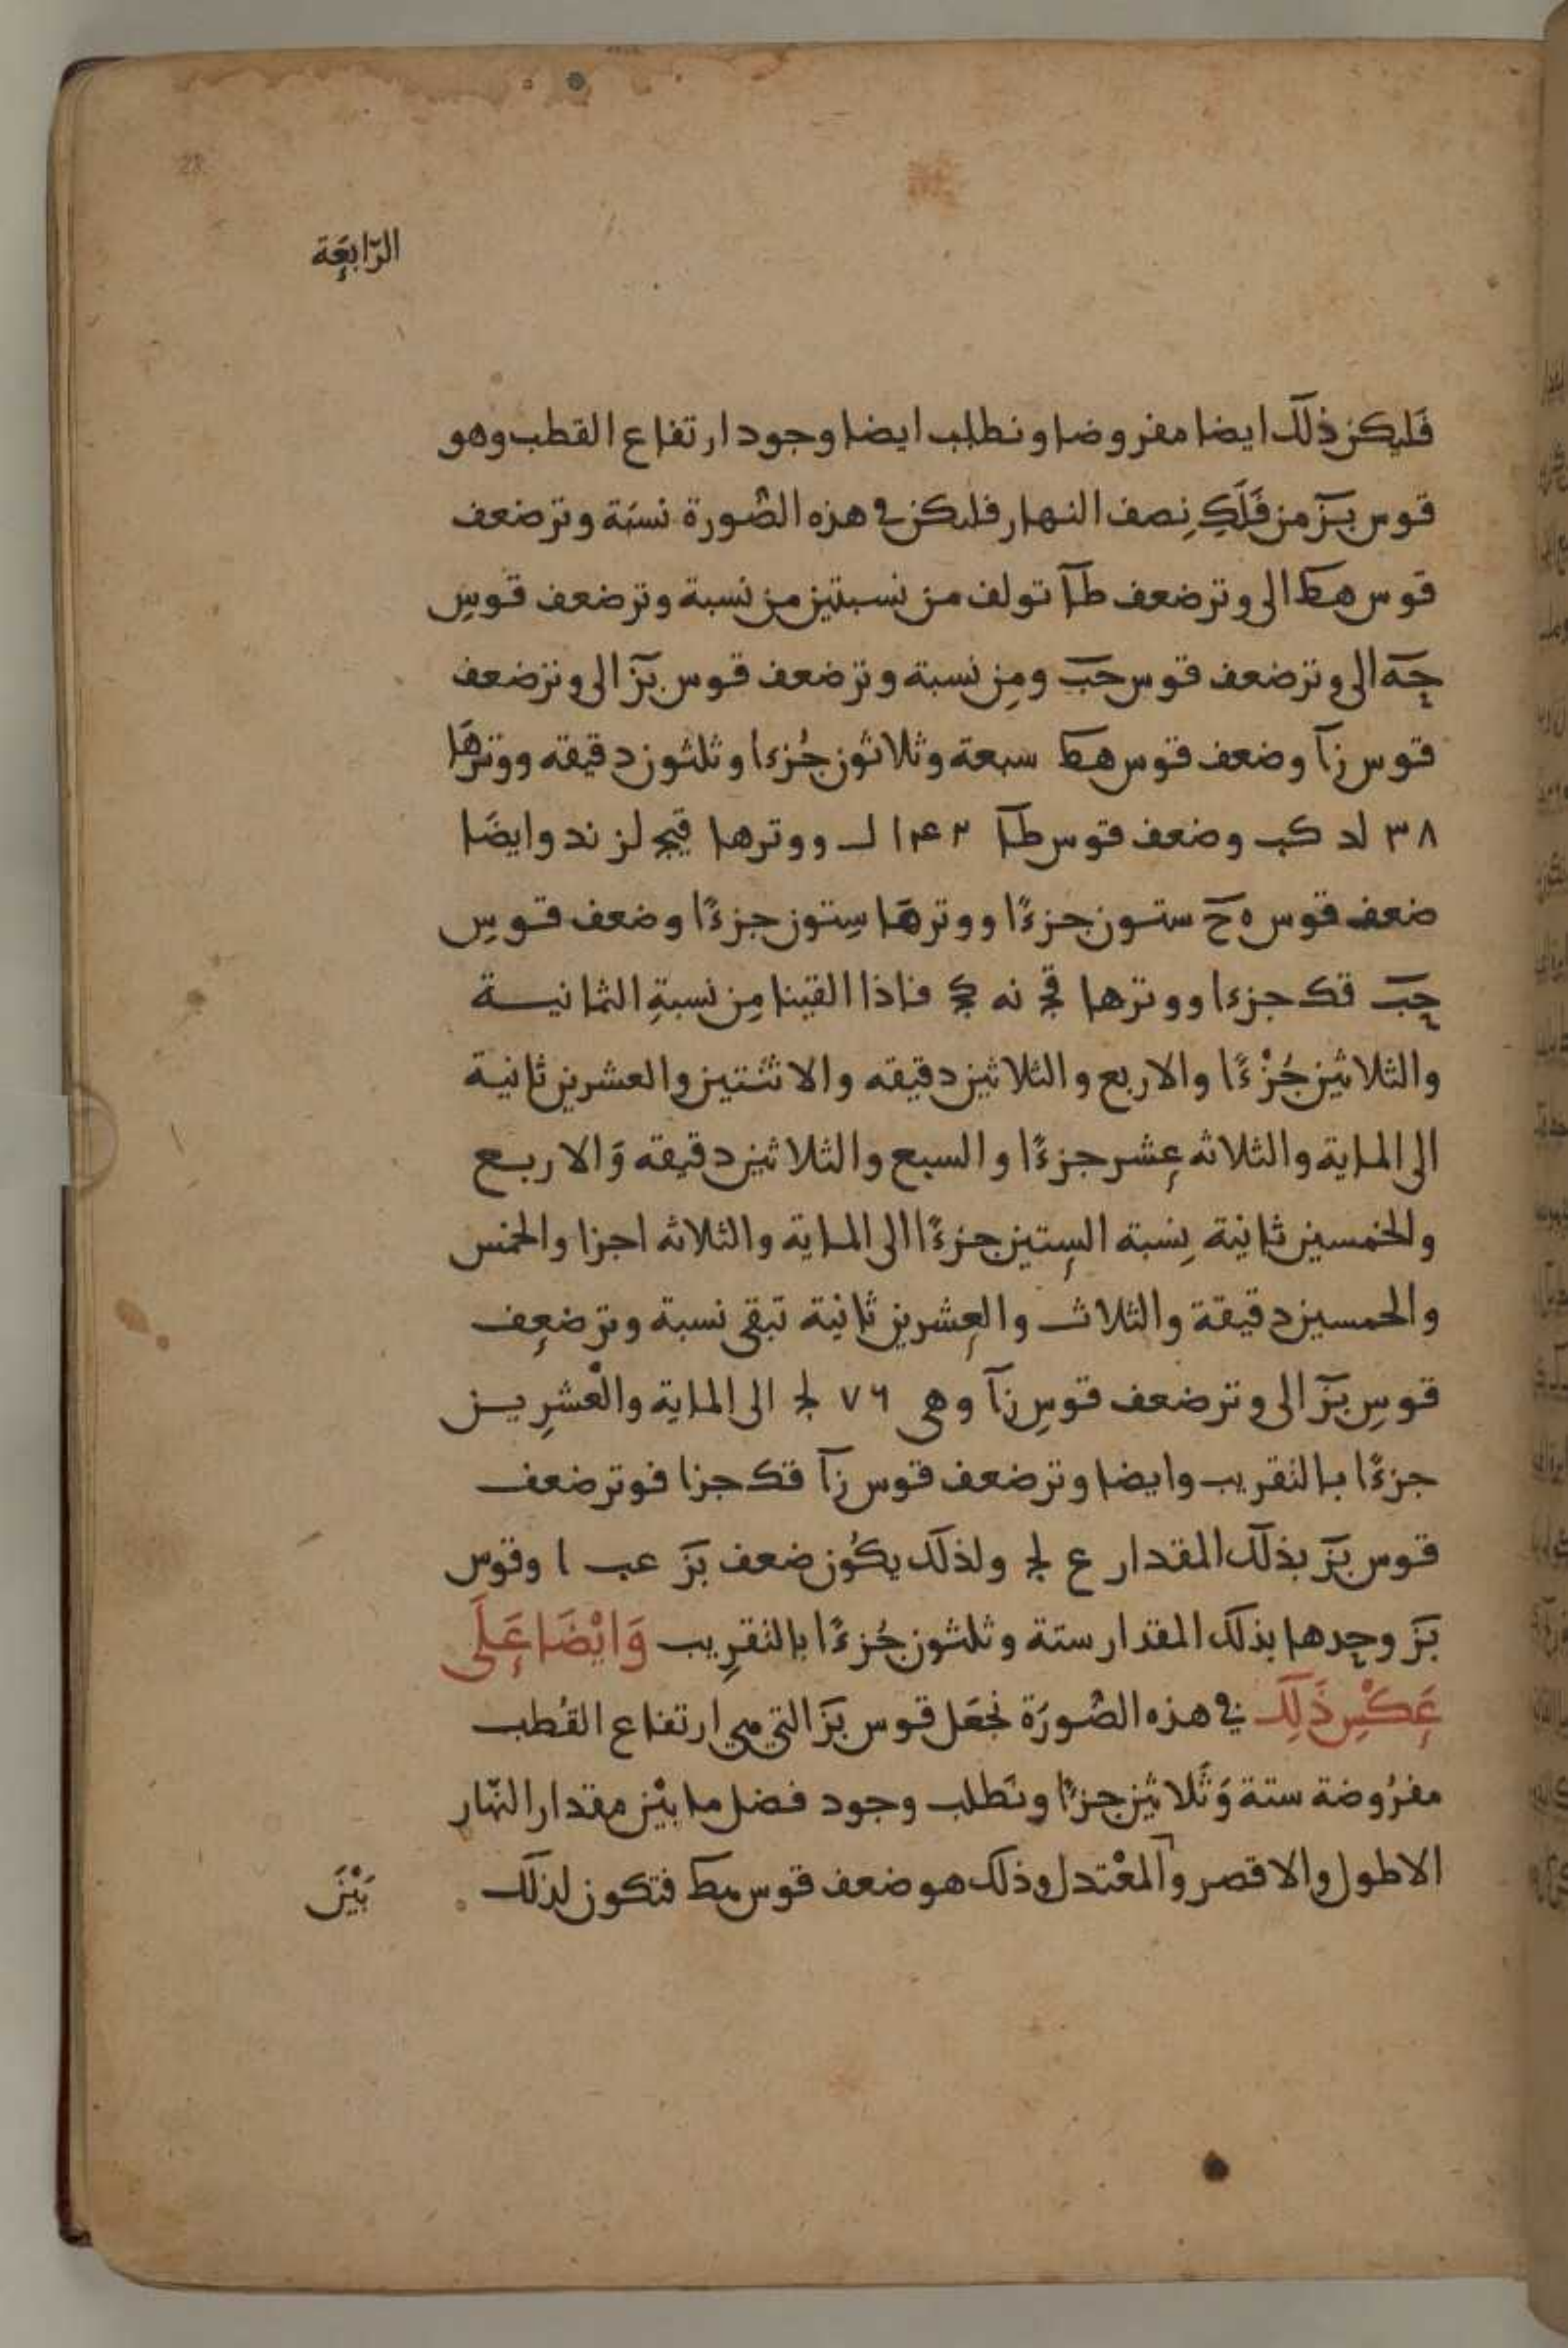 28
الرّابعَة
فَليكن ذلك ايضا مفروضا ونطلب ايضا وجود ارتفاع القطب وهو
قوس بَزَ من فَلَكِ نِصف النهار فليكن في هذه الصُّورة نسبَة وتر ضعف
قوس هط الى وتر ضعف طا تولف من نسبتين من نسبة وتر ضعف قوسِ
حه الى وتر ضعف قوس حب ومِن نسبة وتر ضعف قوس بز الى وتر ضعف
قوس زا وضعف قوس هط سبعة وثلاثون جُزءا وثلثون دقيقه ووترهَا
٣٨ لد كب وضعف قوس طا ١٤٢ ل ووترها قيج لز ند وايضَا
ضعف قوس ه ح ستون جزءًا ووترهَا سِتون جزءًا وضعف قوسِ
حب قك جزءا ووترها قج نه كج فاذا القينا مِن نسبةِ الثمانية
والثلاثين جُزْءًا والاربع والثلاثين دقيقه والاثنتين والعشرين ثانية
الى الماية والثلاثه عِشر جزءًا والسبع والثلاثين دقيقه وَالاربع
والخمسين ثانية نِسبة السِتين جزءًا الى الماية والثلاثه اجزا والخمس
والخمسين دقيقة والثلاث والعِشرين ثانية تبقى نسبة وتر ضعِف
قوسِ بَزَ الى وتر ضعف قوسِ زا وهي ٧٦ لج الى الماية والعْشرِين
جزءًا بالتقريب وايضا وتر ضعف قوس زا قك جزا فوتر ضعف
قوس بَزَ بذلك المقدار ع لج ولذلك يكُون ضعف بَزَ عب ا وقوس
بَزَ وحدها بذلك المقدار ستة وثلثون جُزءًا بالتقرِيب وَايْضَا عَلَى
عَكْسِ ذَلِكَ في هذه الصُّورَة نجعَل قوس بَزَ التي هي ارتفاع القُطب
مفرُوضة ستة وَثَلاثين جزءًا ونَطلب وجود فضل ما بيْن مقدار النّهار
الاطول والاقصر والمعْتدل وذلك هو ضعف قوس هط فتكون لذلك
بَيْنَ